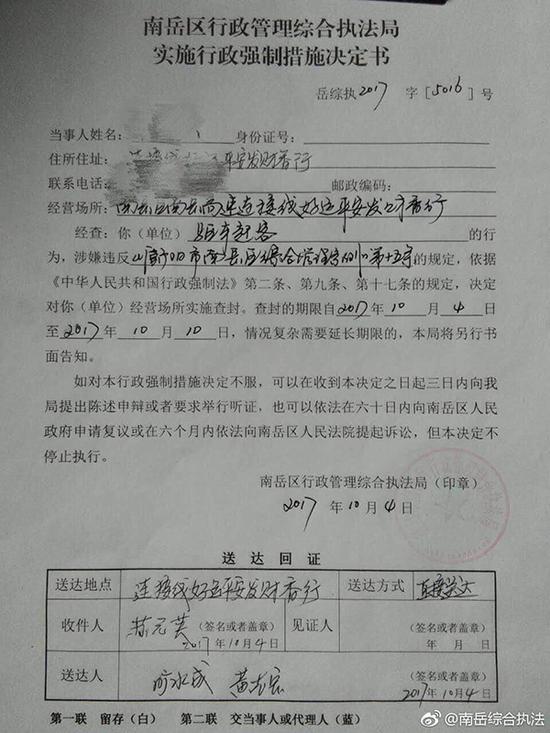 南岳区行政管理综合执法局
实施行政强制措施决定书
岳综执2017 字[5016]号
当事人姓名: 身份证号:
住所住址: 平安发财香行
联系电话: 邮政编码:
经营场所:南岳区南岳高速连接线好运平安发财香行
经查:你(单位) 的行
为,涉嫌违反《衡阳市南岳区综合管理 》第十五条的规定,依据
《中华人民共和国行政强制法》第二条、第九条、第十七条的规定,决定
对你(单位)经营场所实施查封。查封的期限自2017年10月4日
至2017年10月10日,情况复杂需要延长期限的,本局将另行书
面告知。
如对本行政强制措施决定不服,可以在收到本决定之日起三日内向我
局提出陈述申辩或者要求举行听证,也可以依法在六十日内向南岳区人民
政府申请复议或在六个月内依法向南岳区人民法院提起诉讼,但本决定不
停止执行。
南岳区行政管理综合执法局(印章)
2017年10月4日
送达回证
送达地点 连接线好运平安发财香行 送达方式 直接送达
收件人 (签名或者盖章) 见证人 (签名或者盖章)
2017年10月4日 年 月 日
送达人 (签名或者盖章)
2017年10月4日
第一联 留存(白) 第二联 交当事人或代理人(蓝)
@南岳综合执法